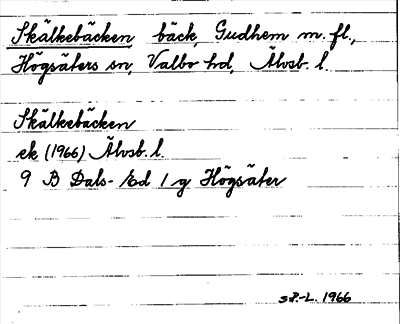 Skälkebäcken bäck, Gudhem m. fl.,
Högsäters sn, Valbo hd, Älvsb. l.
Skälkebäcken
ek (1966) Älvsb. l.
9 B Dals-Ed 1 g Högsäter
S.P.-L. 1966